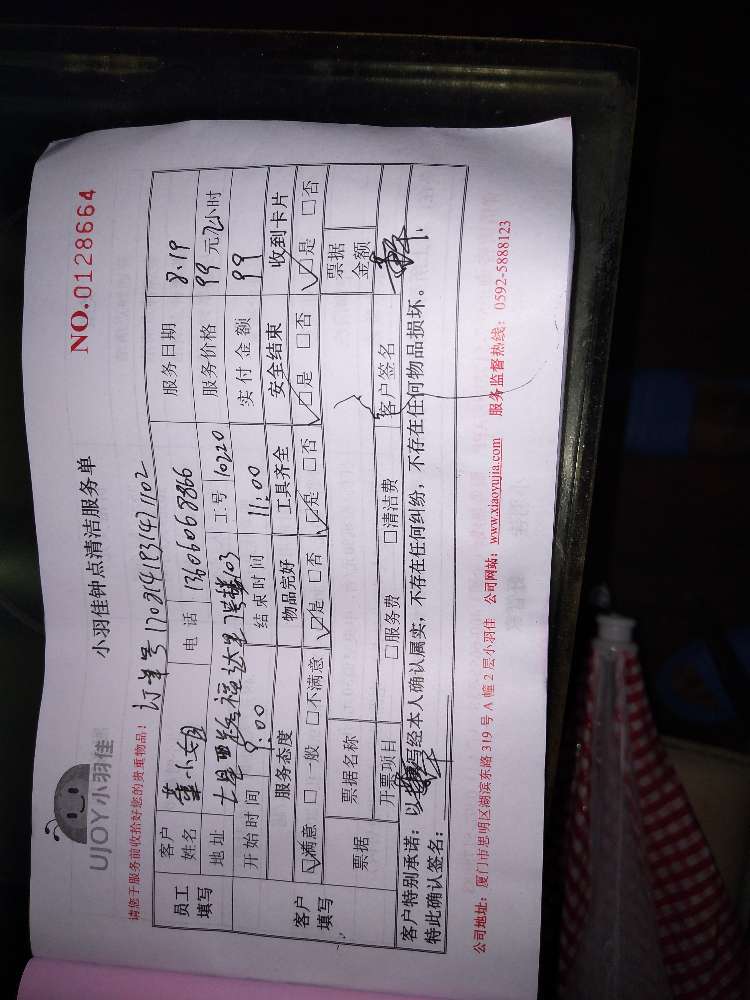 UJOY小羽佳
小羽佳钟点清洁服务单
NO.0128664
请您于服务前收拾好您的贵重物品!
订单号
员工填写
客户姓名 小姐 电话 13606068866 服务日期 8.19
地址 工号 10220 服务价格 99元/2小时
开始时间 9:00 结束时间 11:00 实付金额 99
客户填写
服务态度 物品完好 工具齐全 安全结束 收到卡片
☑满意 □一般 □不满意 ☑是 □否 ☑是 □否 ☑是 □否 ☑是 □否
票据 票据名称 票据金额
开票项目 □服务费 □清洁费 客户签名
客户特别承诺:以 写经本人确认属实,不存在任何纠纷,不存在任何物品损坏。
特此确认签名:
公司地址:厦门市思明区湖滨东路319号A幢2层小羽佳 公司网站:www.xiaoyujia.com 服务监督热线:0592-5888123